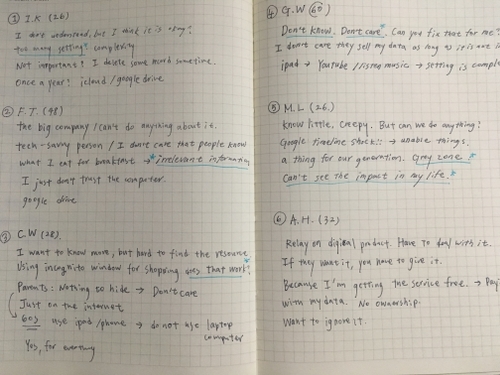 ① I.K (26)
I don't understand, but I think it is okay?
too many setting* complexity
Not important? I delete some record sometime.
Once a year? icloud / google drive
② F.T. (48)
the big company / can't do anything about it.
tech-savvy person / I don't care that people know
what I eat for breakfast → *irrelevant information
I just don't trust the computer.
google drive
③ C.W (28).
I want to know more, but hard to find the resource.
Using incognito window for shopping does that work?
Parents: Nothing to hide → Don't care
Just on the internet
60s use ipad/phone → do not use laptop
computer
Yes, for
④ G.W (60)
Don't know. Don't care* Can you fix that for me?
I don't care they sell my data as long as it is
ipad → Youtube / listen music → setting is
⑤ M.L (26).
Know little. Creepy. But can we do anything?
Google timeline shock!! → unable things.
a thing for our generation. Grey zone *
Can't see the impact in my life. *
⑥ A.H. (32)
Relay on digital product. Have to deal with it.
If they want it, you have to give it.
Because I'm getting the service free. → Pay
with my data. No ownership.
Want to ignore it.